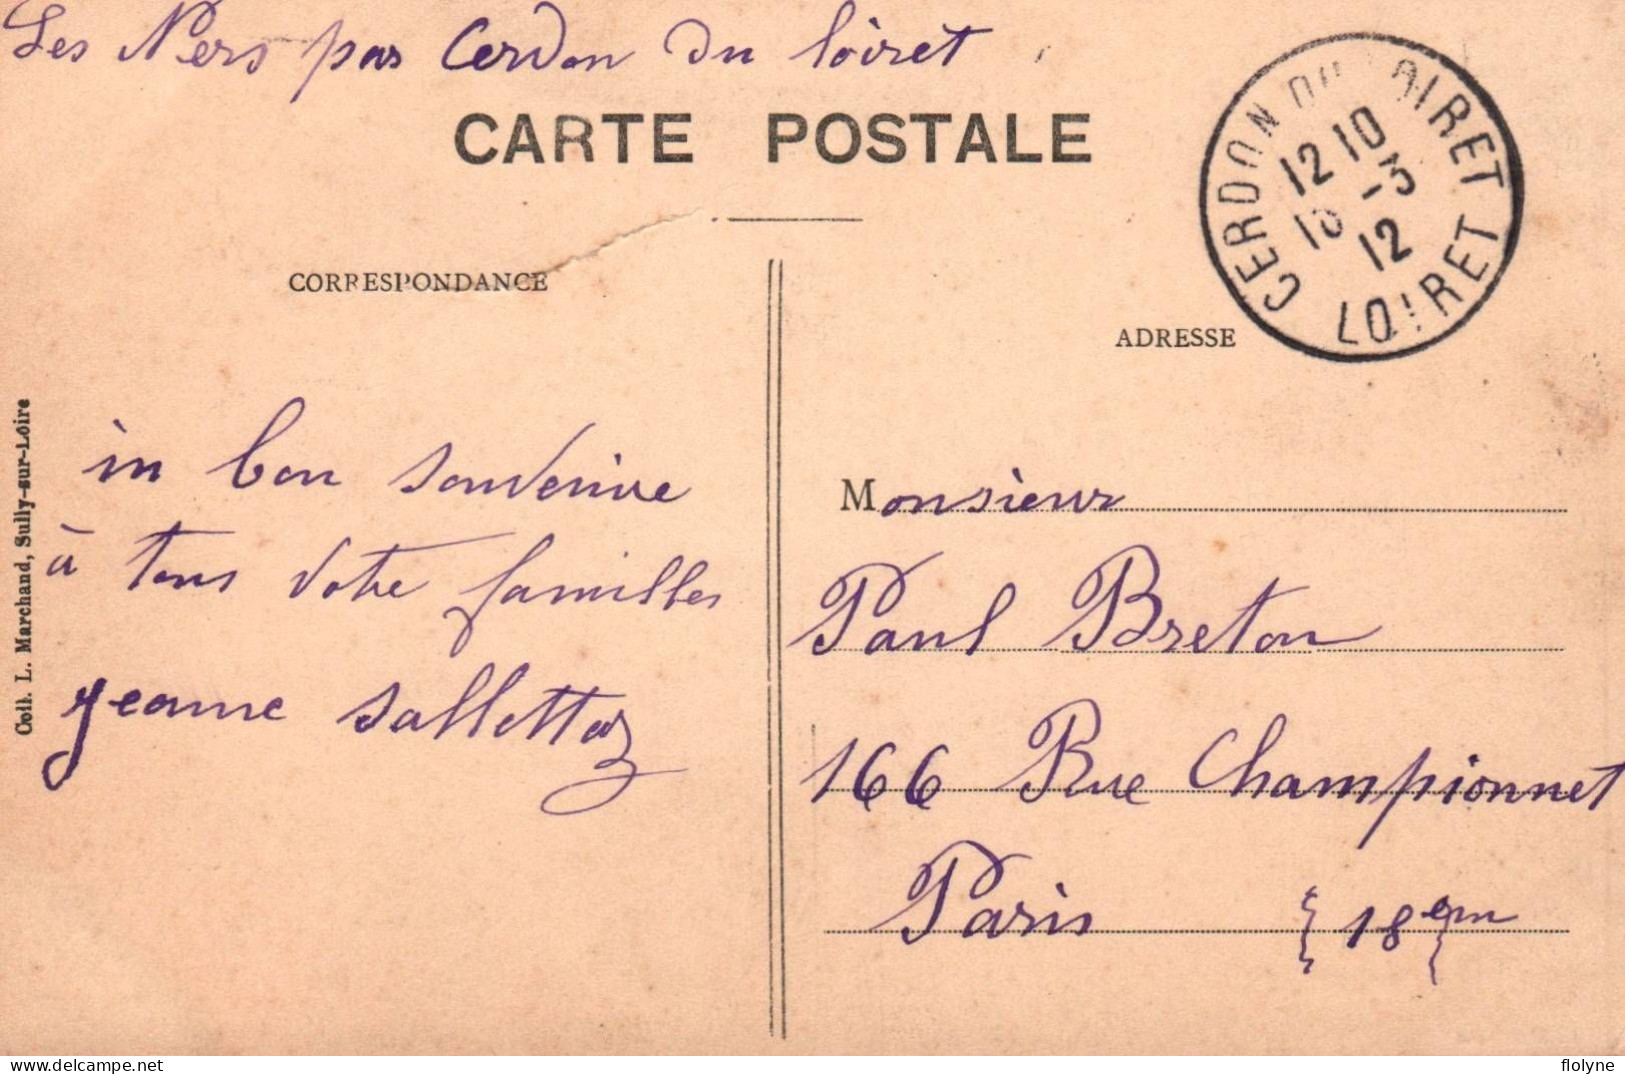 Les Ners par Cerdon du loiret
CARTE POSTALE
CERDON DU LOIRET
12 10
13 -3
12
LOIRET
CORRESPONDANCE
ADRESSE
in bon souvenire
à tous votre familles
jeanne Sallettaz
Coll. L. Marchand, Sully-sur-Loire
Monsieur
Paul Breton
166 Rue Championnet
Paris {18em}
delcampe.net
flolyne